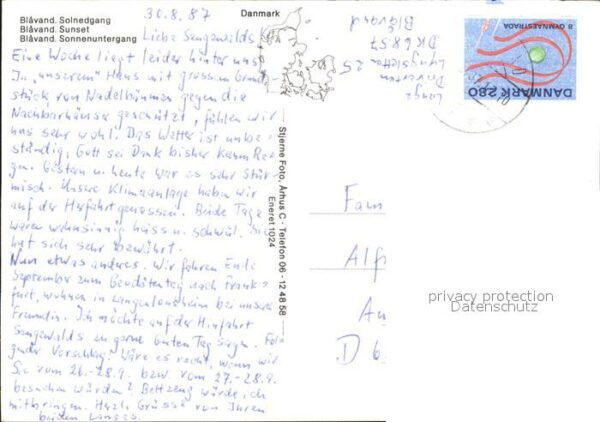 Blåvand. Solnedgang
Blåvand. Sunset
Blåvand. Sonnenuntergang
Danmark
30.8.87
Liebe Sengewalds
Eine Woche liegt leider hinter uns.
In "unserem" Haus mit grossem Grund-
stück von Nadelbäumen gegen die
Nachbarhäuser geschützt, fühlen wir
uns sehr wohl. Das Wetter ist unbe-
ständig, Gott sei Dank bisher kaum Re-
gen. Gestern u. heute war es sehr stür-
misch. Unsere Klimaanlage haben wir
auf der Herfahrt genossen. Beide Tage
waren wahnsinnig heiss u. schwül. Sie
hat sich sehr bewährt.
Nun etwas anderes. Wir fahren Ende
September zum Geodätentag nach Frank-
furt, wohnen in Langenlonsheim bei unserer
Freundin. Ich möchte auf der Hinfahrt
Sengewalds zu gerne guten Tag sagen. Fol-
gender Vorschlag: Wäre es recht, wenn wir
Sie vom 26.-28.9. bzw. vom 27.-28.9.
besuchen würden? Bettzeug würde ich
mitbringen. Herzl. Grüsse von Ihren
beiden Langes.
Stjerne Foto, Århus C - Telefon 06 - 12 48 58
Eneret 1024
Lange
DK 6857
Blåvand
8 GYMNAESTRADA
DANMARK 280
Fam
Alf
D 6
privacy protection
Datenschutz